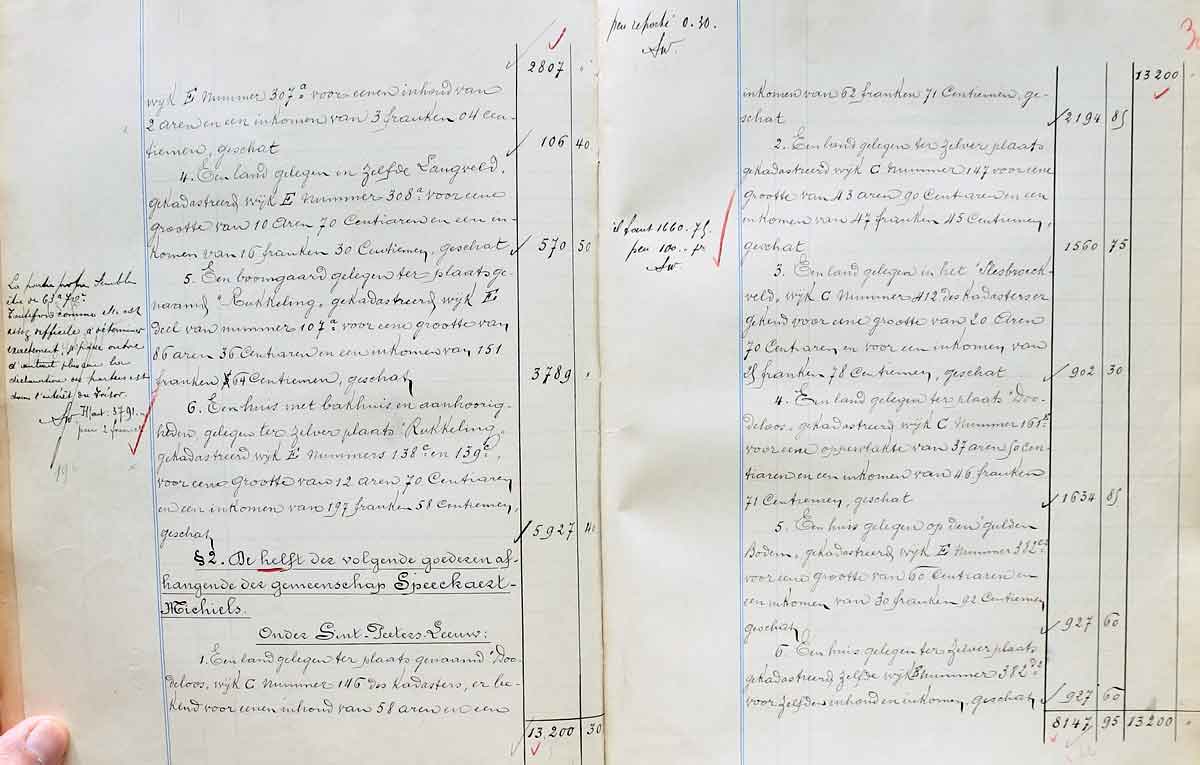 2807
wijk E Nummer 307a voor eenen inhoud van
2 aren en een inkomen van 3 franken 04 Cen-
tiemen, geschat 106 40
4. Een land gelegen in zelfde Langveld,
gekadastreerd wijk E Nummer 308a voor eene
grootte van 10 Aren 70 Centiaren en een in-
komen van 16 franken 30 Centiemen, geschat 570 50
5. Een boomgaard gelegen ter plaats ge-
naamd "Rukkeling, gekadastreerd wijk E
deel van nummer 107a voor eene grootte van
86 aren 36 Centiaren en een inkomen van 151
franken 64 Centiemen, geschat 3789
6. Een huis met bakhuis en aanhoorig-
heden, gelegen ter zelver plaats "Rukkeling,
gekadastreerd wijk E Nummers 138c en 139a,
voor eene grootte van 12 aren, 70 Centiaren
en een inkomen van 197 franken 58 Centiemen,
geschat 5927 40
§2. De helft der volgende goederen af-
hangende der gemeenschap Speeckaert-
Michiels.
Onder Sint-Peeters-Leeuw:
1. Een land gelegen ter plaats genaamd "Doo-
deloos, wijk C Nummer 146 des kadasters, er be-
kend voor eenen inhoud van 58 aren en een
13,200 30
La partie semble
être de 63a 70c
Toutefois comme elle est
assez difficile à déterminer
exactement,
d'autant plus que la
déclaration des parties est
dans l'intérêt du Trésor.
Sw
peu reporté 0.30.
Sw.
13200
inkomen van 62 franken 71 Centiemen, ge-
schat 2194 85
2. Een land gelegen ter zelver plaats
gekadastreerd wijk C Nummer 147 voor eene
grootte van 43 aren 90 Centiaren en een
inkomen van 47 franken 45 Centiemen,
geschat 1560 75
il faut 1660.75
peu 100.- fr
Sw
3. Een land gelegen in het "Slesbroeck-
veld, wijk C Nummer 412 des kadasters er
gekend voor eene grootte van 20 Aren
70 Centiaren en voor een inkomen van
25 franken 78 Centiemen, geschat 902 30
4. Een land gelegen ter plaats "Doo-
deloos, gekadastreerd wijk C Nummer
voor eene oppervlakte van 37 aren 50 Cen-
tiaren en een inkomen van 46 franken
71 Centiemen, geschat 1634 85
5. Een huis gelegen op den "gulden
Bodem, gekadastreerd wijk E Nummer
voor eene grootte van 60 Centiaren en
een inkomen van 30 franken 92 Centiemen,
geschat 927 60
6. Een huis gelegen ter zelver plaats
gekadastreerd zelfde wijk E nummer 382
voor zelfden inhoud en inkomen, geschat 927 60
8147 95 13200